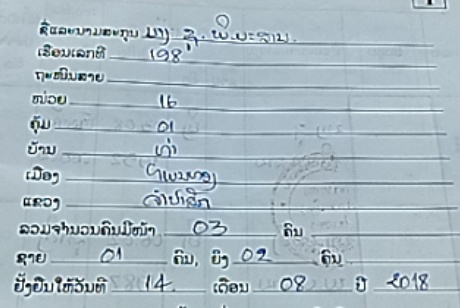 ຊື່ແລະນາມສະກຸນ ນາງ
ເຮືອນເລກທີ 198
ຖະໜົນສາຍ
ໜ່ວຍ 16
ຄຸ້ມ 01
ບ້ານ ທ່າ
ເມືອງ ໂພນທອງ
ແຂວງ ຈຳປາສັກ
ລວມຈຳນວນຄົນມີໜ້າ 03 ຄົນ
ຊາຍ 01 ຄົນ, ຍິງ 02 ຄົນ
ຢັ້ງຢືນໃຫ້ວັນທີ 14. ເດືອນ 08 ປີ 2018